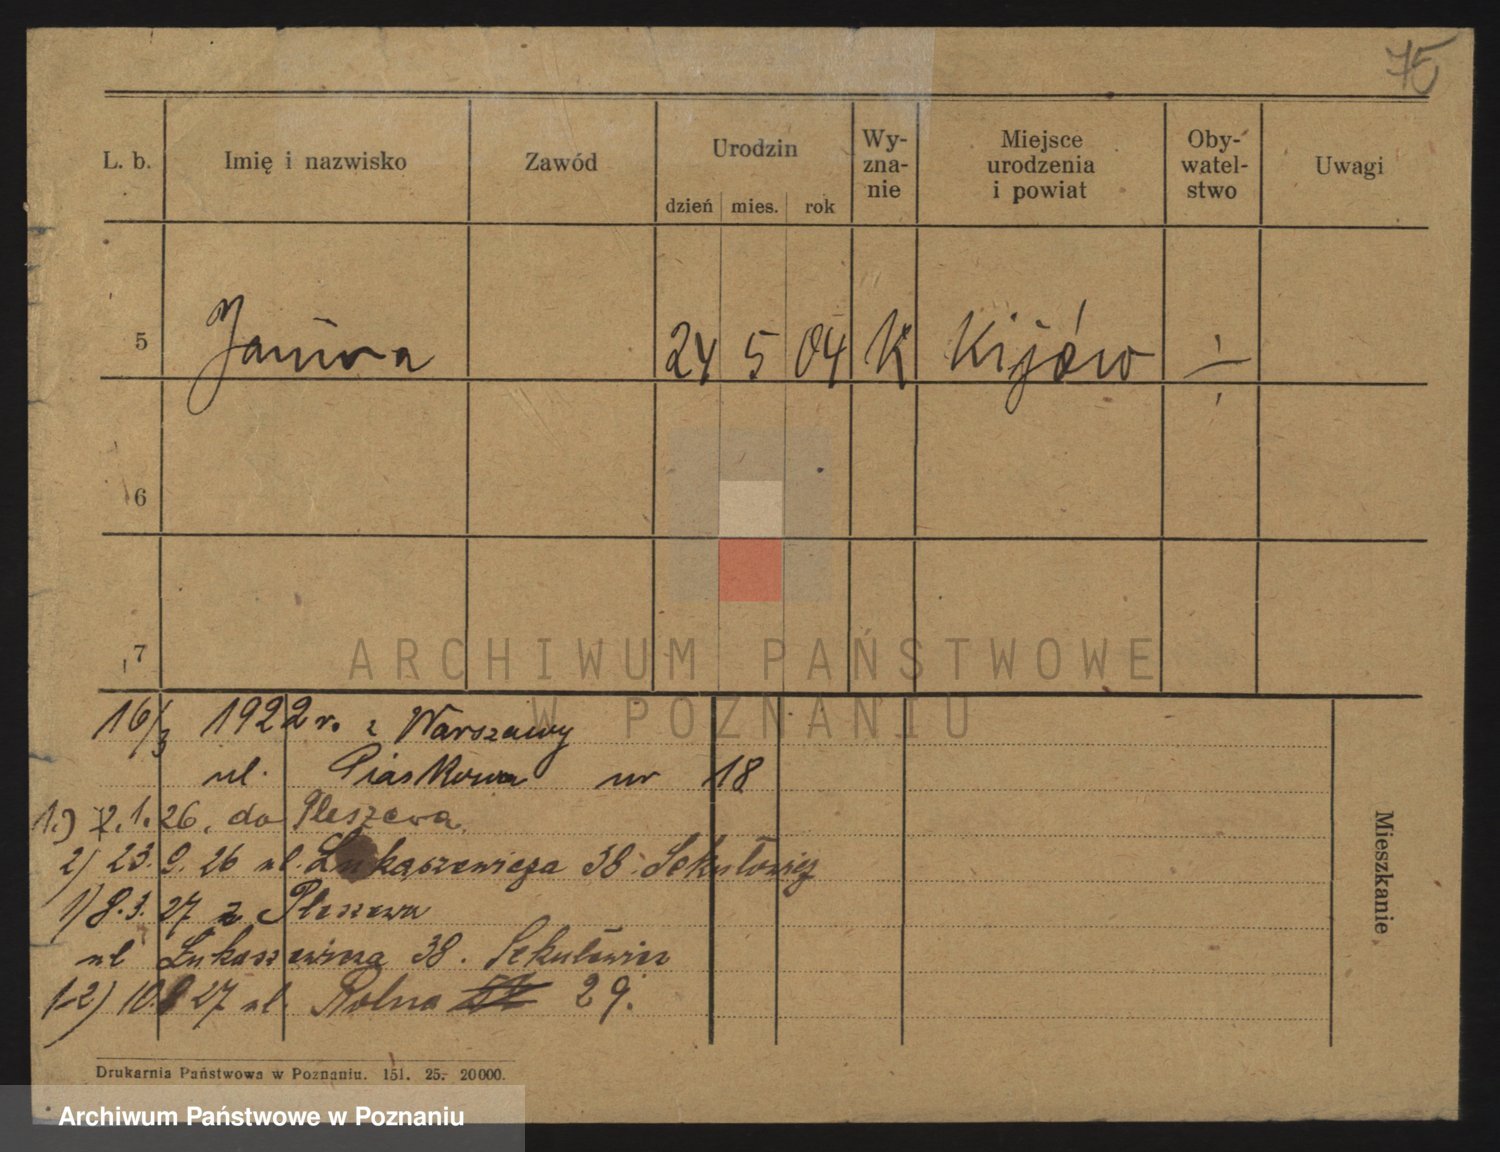 75
L. b. Imię i nazwisko Zawód Urodzin Wy- Miejsce Oby- Uwagi
zna- urodzenia watel-
nie i powiat stwo
dzień mies. rok
5 Janina 24 5 04 K Kijów ÷
6
7
ARCHIWUM PAŃSTWOWE
W POZNANIU
16/3 1922 r. z Warszawy
ul. Piaskowa nr 18
1.) 2.1.26. do Pleszewa
2) 23.9.26 ul. Łukaszewicza 38. Sekułowicz
1) 8.3.27 z Pleszewa
ul Łukaszewicza 38. Sekułowicz
1-2) 10. 27 ul. Rolna 29.
Mieszkanie
Drukarnia Państwowa w Poznaniu. 151. 25- 20000.
Archiwum Państwowe w Poznaniu